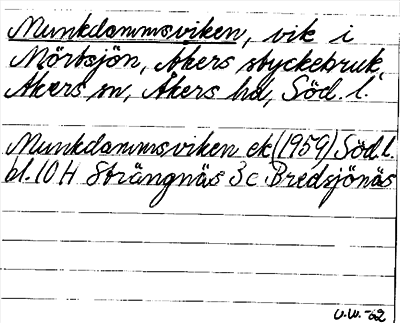 Munkdammsviken, vik i
Mörtsjön, Åkers styckebruk,
Åkers sn, Åkers hd, Söd. l.
Munkdammsviken ek (1959) Söd. l.
bl. 10 H Strängnäs 3 c Bredsjönäs
U.W.-62